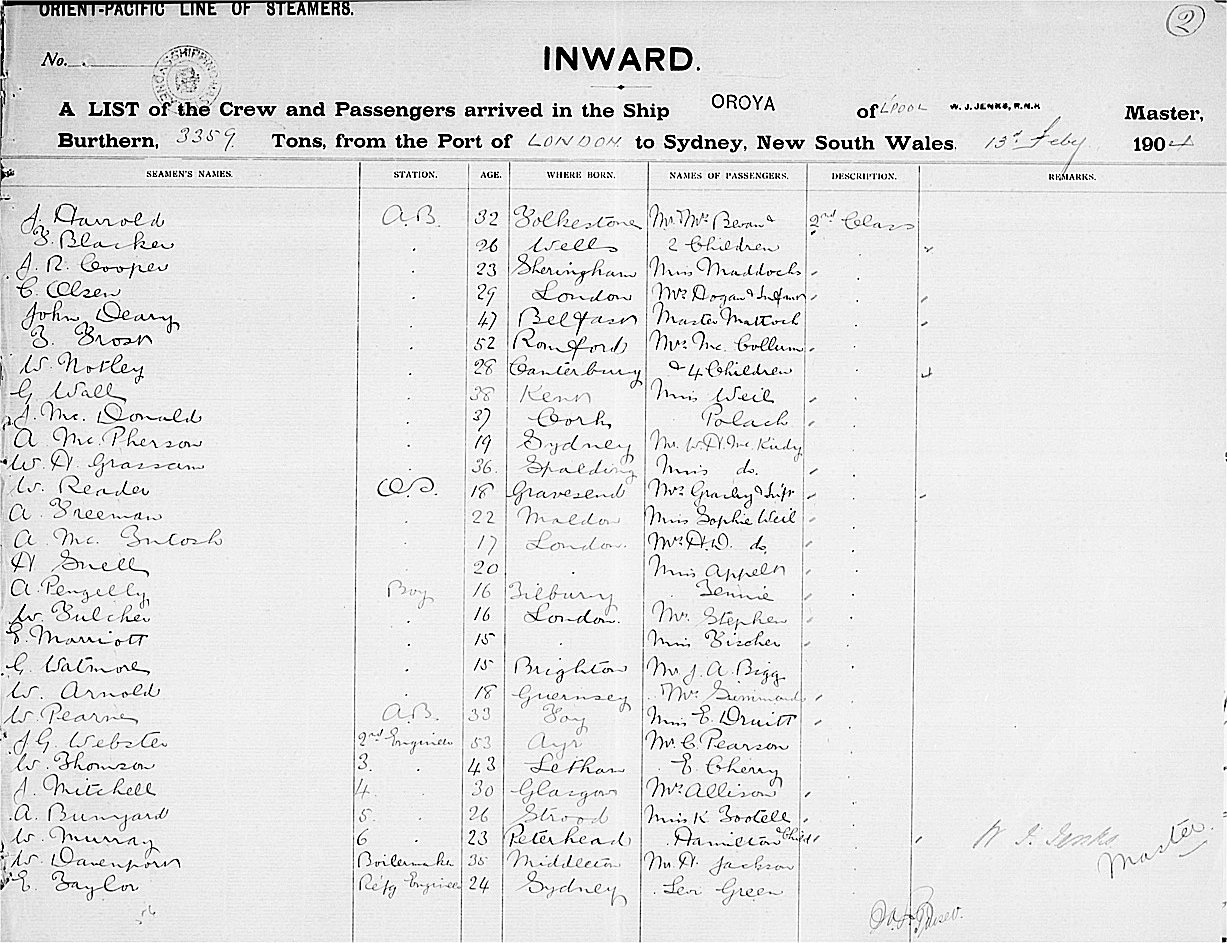 ORIENT-PACIFIC LINE OF STEAMERS.
2
No.
INWARD.
A LIST of the Crew and Passengers arrived in the Ship OROYA of L'POOL W. J. JENKS, R.N.R Master,
Burthern, 3359 Tons, from the Port of LONDON to Sydney, New South Wales. 13th Feby 1904
SEAMEN'S NAMES. STATION. AGE. WHERE BORN. NAMES OF PASSENGERS. DESCRIPTION. REMARKS.
J. Harrold A.B. 32 Folkestone Mr. Mrs Bevan & 2nd Class
F. Blacker . 26 Wells 2 Children
J. R. Cooper . 23 Sheringham Miss Maddocks
C. Olsen . 29 London Mrs Hogan & Infant
John Deary . 47 Belfast Master Mattock
F. Frost . 52 Romford Mrs Mc. Collum
W. Notley . 28 Canterbury & 4 Children
G Wall . 38 Kent Miss Weil
J. Mc. Donald . 37 Cork Polach
A Mc. Pherson . 19 Sydney Mr. W. H. Mc Kirdy
W. H. Grassam . 36 Spalding Miss do.
W. Reader O.S. 18 Gravesend Mrs & Inft
A Freeman . 22 Maldon Miss Sophie Weil
A Mc. Intosh . 17 London. Mrs H. D. do
H Snell . 20 . Miss Appelt
A. Pengelly Boy 16 Tilbury . Jennie
W. Fulcher . 16 London. Mr. Stephen
E. Marriott . 15 . Miss Fischer
G. Watmore . 15 Brighton Mr J. A. Bigg
W. Arnold . 18 Guernsey . Mrs Simmonds
W. Pearne A.B. 33 Foy Miss E. Druitt
J G. Webster 2nd Engineer 53 Ayr Mr C. Pearson
W. Thomson 3. . 43 Letham . E. Cherry
J. Mitchell 4. . 30 Glasgow Mrs Allison
A. Bunyard 5. . 26 Strood Miss K Tootell
W. Murray 6 . 23 Peterhead . Hamilton & Child
W. Davenport Boilermaker 35 Middleton Mr. H. Jackson
E. Taylor Refg Engineer 24 Sydney . Levi Green
W. J. Jenks
Master.
56